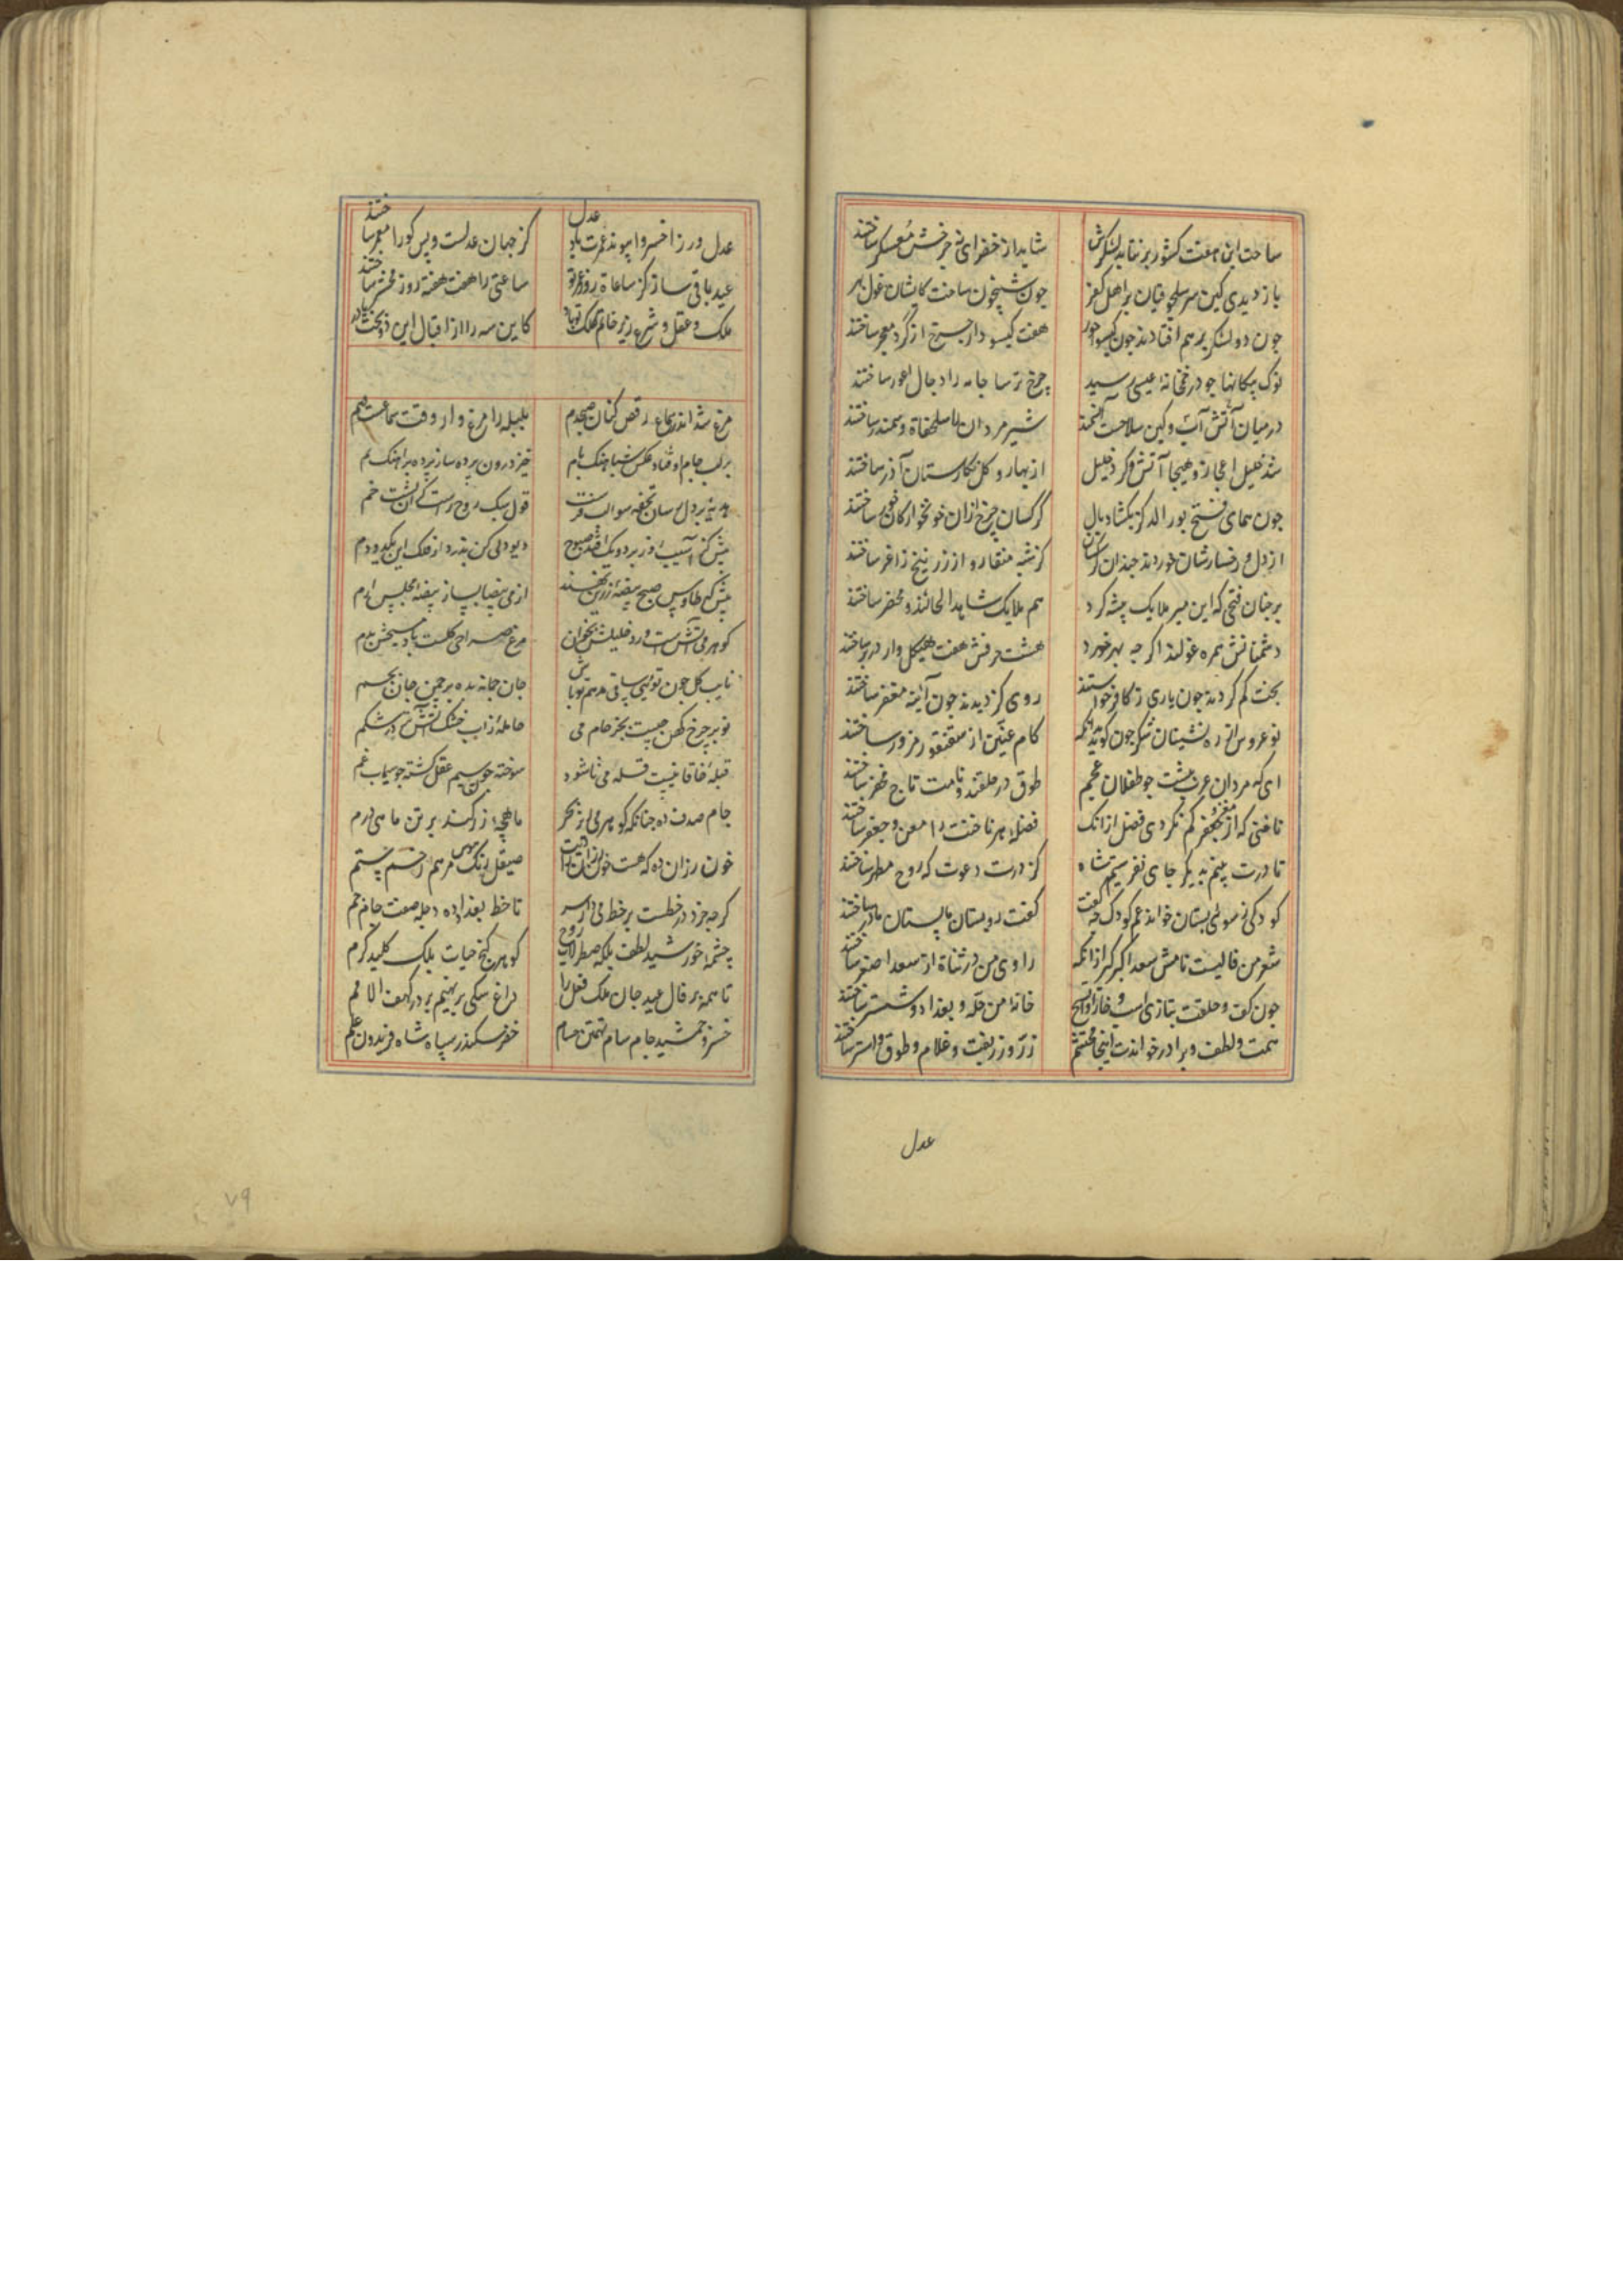 ساحت این هفت کشور برنتابد لشکرش شاید از خضرای نه چرخش معسکر ساختند
باز دیدی کین سر سلجوقیان بر اهل کفر چون شبیخون ساخت کایشان غول
چون دو لشکر برهم افتادند چون کیسوی حور هفت کیسودار چرخ از کرد معجر ساختند
نوک پیکانها چو در خانهٔ عیسی رسید چرخ ترسا جامه را دجال اعور ساختند
در میان آتش آب وکین سلاحست شیر مردان سلحفاة و سمندر ساختند
شد خلیل اعجاز و هیجا آتش و کرد خلیل از بهار و کل نکارستان آذر ساختند
چون همای فتح پور الدکز بکشاد بال کرکسان چرخ از آن خونخوارکان خور ساختند
از دل و رخسارشان خوردند چندان کرکسان کز شبه منقار و از زرنیخ زاغر ساختند
بر چنان فتحی که این میر ملایک پیشه کرد هم ملایک شاهد الحالند و محضر ساختند
دشمنانش همره غولند اکر چه بهر خورد هشت حرفش هفت هیکل وار در بر ساختند
بخت کم کردند چون یاری ز کافر خواستند روی کژ دیدند چون آئینه مغفر ساختند
نوعروس از ره نشینان شکر چون کوید آنکه کام عنین از سقنقور مزور ساختند
ای که مردان عرب پیشت چو طفلان عجم طوق در حلقند و نامت تاج مفخر ساختند
ناخنی که از معن و جعفر کم نکردی فضل از آنک فضلهٔ هر ناخنت را معن و جعفر ساختند
تا درت بینم بدیکر جای نفرستم شاه کز درت دعوت که روح مطهر ساختند
کودکی نی سوی بستان خواند عم کودک چه کفت کفت رو بستان ما پستان مادر ساختند
شعر من فالیست نامش سعد اکبر کیر از آنکه راوی من در ثنات از سعد اصغر ساختند
چون کف و خلقت بتازی است و فارقی خانهٔ من حله و بغداد و ششتر ساختند
همت و لطف ویرا در خواندت اینجا محتشم زر و زربفت و غلام و طوق و استر ساختند
عدل
عدل ورزا خسروا پیوند عمرت باد عدل کز جهان عدلست وبس کورا معمر ساختند
عید باقی ساز کز ساعات روز عمر تو ساعتی را هفت هفته روز محشر ساختند
ملک و عقل و شرع زیر خاتم و کلک تو باد کاین سه را از اقبال این دو بخت یاور ساختند
مرغ شد اندر سماع رقص کنان صبحدم بلبله را مرغ وار وقت سماعست هم
بر لب جام اوفتاد عکس شباهنک بام خیز درون پرده ساز پرده بر آهنک بم
هدیه بر دل رسان تحفه سوی لب فرست قول سبک روح راست کآن پشت خم
پیش کز آسیب روز بر دو یک افتد صبوح دیو دلی کن بدزد از فلک این یکدو دم
پیش که طاوس صبح بیضهٔ زرین نهند از می بیضا بساز بیضهٔ مجلس ارم
کوهر می آتشست ورد خلیلش بخوان مرغ صراحی کلست باد مسیحش بدم
نایب کل چون توئی ساقی می هم تو باش جان چمانه بده بر چمن جان بجسم
نوبر چرخ کهن چیست بجز جام می حامله از آب خشک آتش تر در شکم
قبلهٔ خاقانیست قبلهٔ می تا شود سوخته چون سیم عقل کشته چو سیماب غم
جام صدف ده چنانکه کوهر می از بحر ماهچهٔ زر کند بر تن ماهی درم
خون رزان ده که هست خون روان را دیت صیقل زنک هوس مرهم زخم ستم
کرچه خرد در خطست بر خط می دار سر تا خط بغداد ده دجله صفت جام جم
چشمهٔ خورشید لطف بلکه سطرلاب روح کوهر کنج حیات بلک کلید کرم
تا همه بر فال عید جان ملک فعل را داغ سکی بر نهیم بر در کهف الامم
خسرو جمشید جام سام تهمتن حسام خضر سکندر سپاه شاه فریدون علم
۷۹